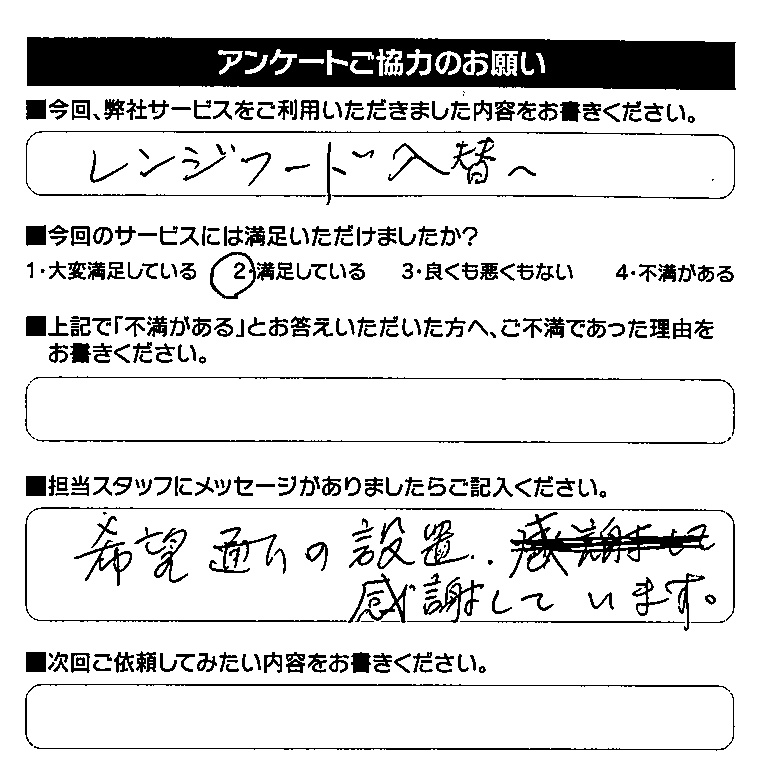 アンケートご協力のお願い
■今回、弊社サービスをご利用いただきました内容をお書きください。
レンジフード入替へ
■今回のサービスには満足いただけましたか？
1・大変満足している 2・満足している 3・良くも悪くもない 4・不満がある
■上記で「不満がある」とお答えいただいた方へ、ご不満であった理由を
お書きください。
■担当スタッフにメッセージがありましたらご記入ください。
希望通りの設置..
感謝しています。
■次回ご依頼してみたい内容をお書きください。